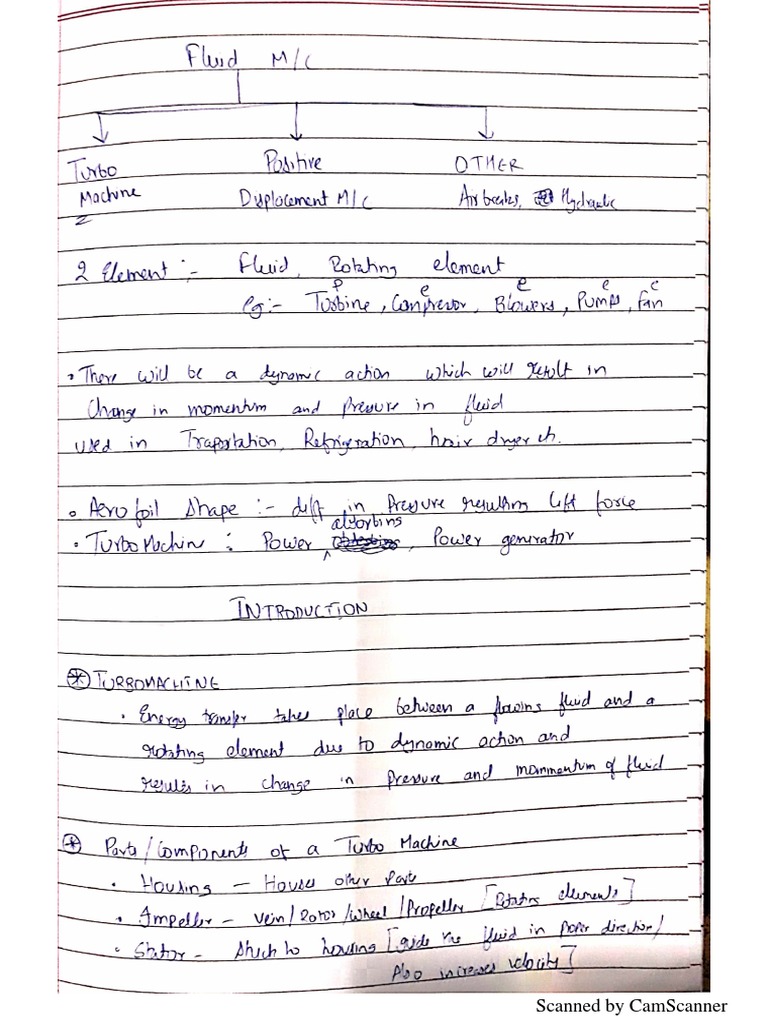 Fluid M/C
Turbo Positive OTHER
Machine Displacement M/C Air breakes, Hydraulic
2
2 Element :- Fluid, Rotating element
P e e e c
eg:- Turbine, Compressor, Blowers, Pumps, Fan
• There will be a dynamic action which will result in
Change in momentum and pressure in fluid
used in Traportation, Refrigeration, hair dryer etc.
• Aerofoil Shape :- diff in Pressure resulting lift force
absorbing
• TurboMachin : Power , Power generator
INTRODUCTION
* TURBOMACHINE
• Energy transfer takes place between a flowing fluid and a
rotating element due to dynamic action and
results in change in pressure and mommentum of fluid
* Parts/Components of a Turbo Machine
• Housing – Houses other Parts
• Impeller – Vein/Rotor/Wheel/Propeller [Rotating elements]
• Stator – Stuch to housing [guide the fluid in proper direction/
Also increases velocity]
Scanned by CamScanner